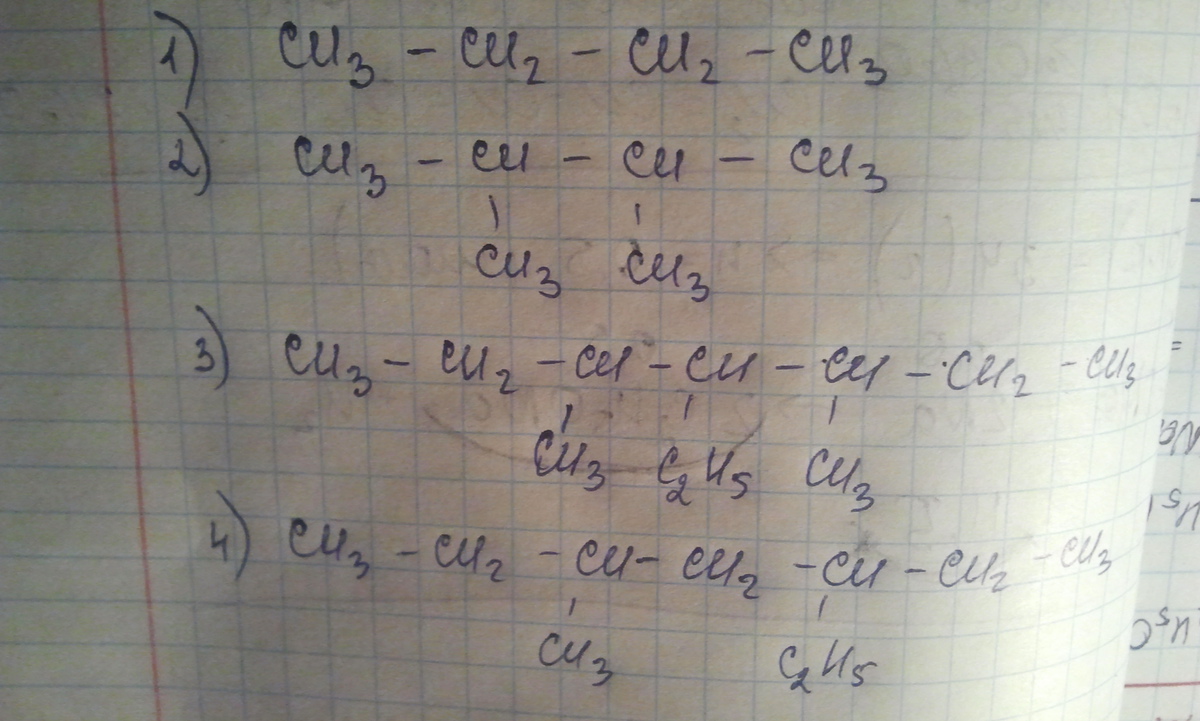 1) CH3 - CH2 - CH2 - CH3
2) CH3 - CH - CH - CH3
CH3 CH3
3) CH3 - CH2 - CH - CH - CH - CH2 - CH3
CH3 C2H5 CH3
4) CH3 - CH2 - CH - CH2 - CH - CH2 - CH3
CH3 C2H5